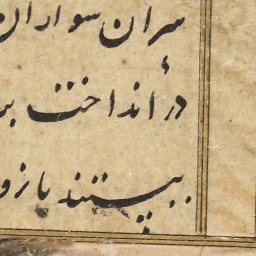 سران سواران
در انداختند
ببستند بازو